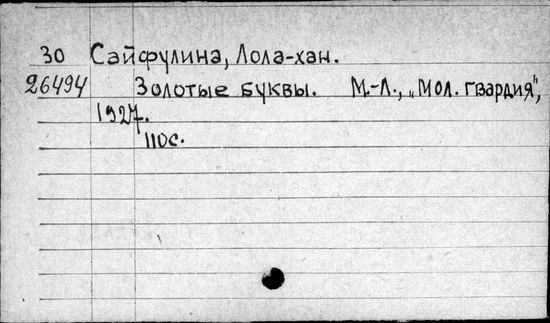 30 Сайфулина, Лола-хан.
26494 Золотые буквы. М.-Л., „Мол. гвардия",
1927.
110с.